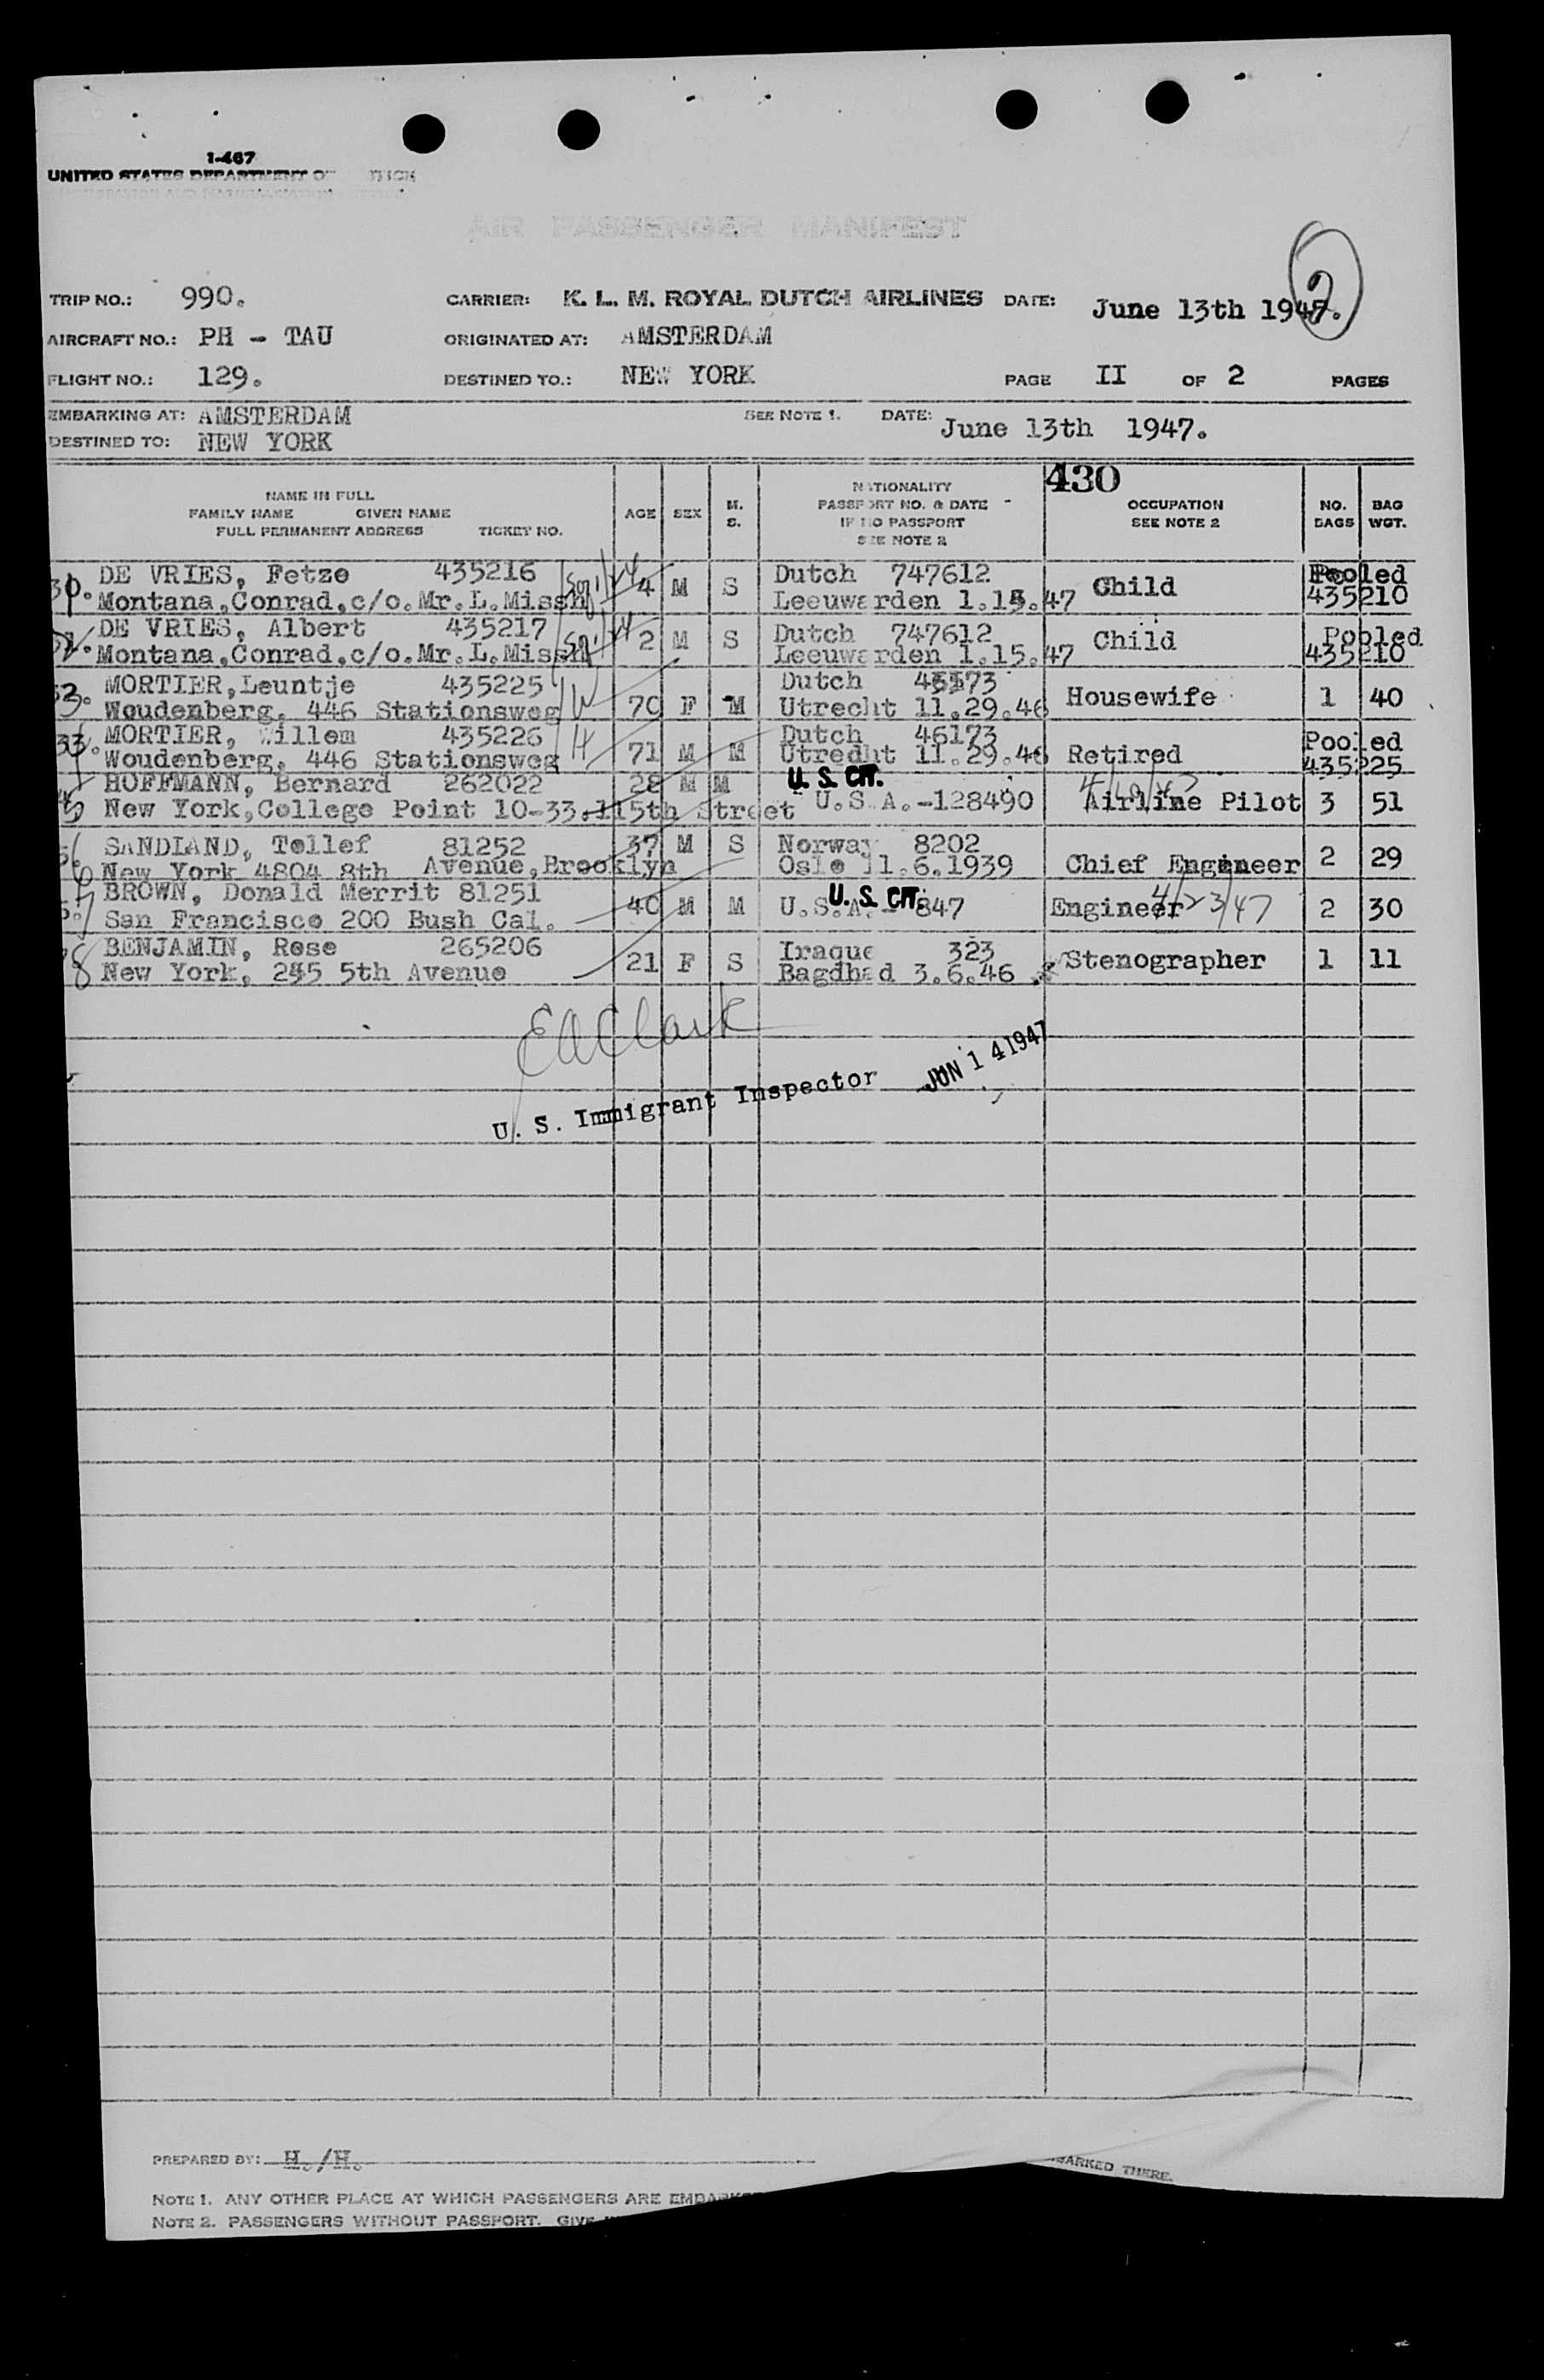 1-467
UNITED STATES DEPARTMENT OF
AIR PASSENGER MANIFEST
2
TRIP NO.: 990. CARRIER: K. L. M. ROYAL DUTCH AIRLINES DATE: June 13th 1947.
AIRCRAFT NO.: PH - TAU ORIGINATED AT: AMSTERDAM
FLIGHT NO.: 129. DESTINED TO.: NEW YORK PAGE II OF 2 PAGES
EMBARKING AT: AMSTERDAM SEE NOTE 1. DATE: June 13th 1947.
DESTINED TO: NEW YORK
430
NAME IN FULL
FAMILY NAME GIVEN NAME
FULL PERMANENT ADDRESS TICKET NO. AGE SEX M. S. NATIONALITY PASSPORT NO. & DATE IF NO PASSPORT SEE NOTE 2 OCCUPATION SEE NOTE 2 NO. BAGS BAG WGT.
DE VRIES, Fetze 435216 4 M S Dutch 747612 Child Pooled
Montana,Conrad,c/o.Mr.L.Missh Leeuwarden 1.15.47 435210
DE VRIES, Albert 435217 2 M S Dutch 747612 Child Pooled
Montana,Conrad,c/o.Mr.L.Missh Leeuwarden 1.15.47 435210
MORTIER,Leuntje 435225 70 F M Dutch Housewife 1 40
Woudenberg, 446 Stationsweg Utrecht 11.29.46
33. MORTIER, Willem 435226 71 M M Dutch 46173 Retired Pooled
Woudenberg, 446 Stationsweg Utrecht 11.29.46 435225
HOFFMANN, Bernard 262022 28 M M U. S. CIT.
New York,College Point 10-33.115th Street U.S.A.-128490 Airline Pilot 3 51
SANDLAND, Tollef 81252 37 M S Norway 8202
New York 4804 8th Avenue,Brooklyn Oslo 11.6.1939 Chief Engineer 2 29
BROWN, Donald Merrit 81251 40 M M U. S. CIT. 4/23/47
San Francisco 200 Bush Cal. U.S.A.- 847 Engineer 2 30
BENJAMIN, Rose 265206 21 F S Iraque 323 Stenographer 1 11
New York, 245 5th Avenue Bagdhad 3.6.46
EAClark
U. S. Immigrant Inspector JUN 14 1947
PREPARED BY: H./H.
BARKED THERE.
NOTE 1. ANY OTHER PLACE AT WHICH PASSENGERS ARE
NOTE 2. PASSENGERS WITHOUT PASSPORT. GIVE